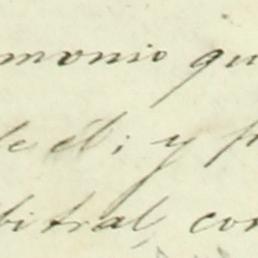 monio qu
de él; y p
bitral, con